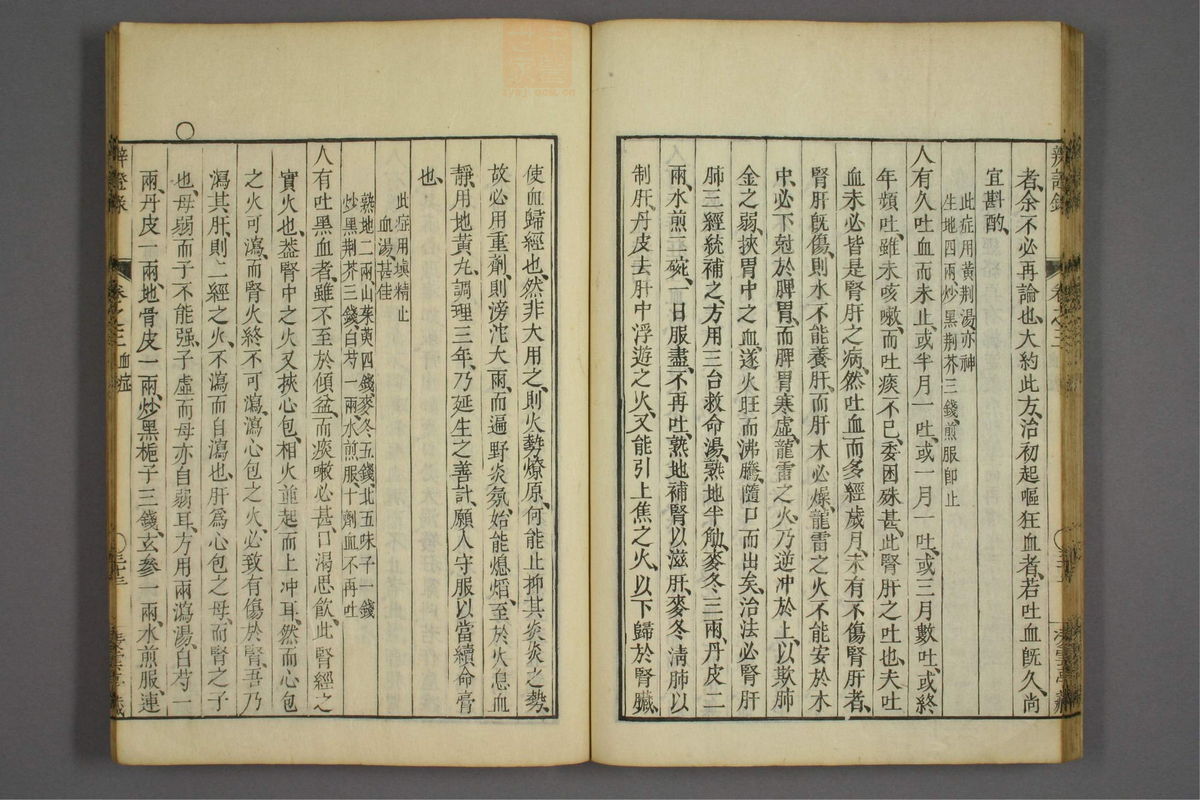 者、余不必再論也、大約此方、治初起嘔狂血者、若吐血旣久、尚
宜斟酌、
此症用黃荆湯亦神
生地四兩、炒黑荆芥三錢、煎服卽止
人有久吐血而未止、或半月一吐、或一月一吐、或三月數吐、或終
年頻吐、雖未咳嗽、而吐痰不已、委困殊甚、此腎肝之吐也、夫吐
血未必皆是腎肝之病、然吐血而多經歲月、未有不傷腎肝者、
腎肝旣傷、則水不能養肝、而肝木必燥、龍雷之火不能安於木
中、必下尅於脾胃、而脾胃寒虛、龍雷之火乃逆冲於上、以欺肺
金之弱、挾胃中之血、遂火旺而沸騰、隨口而出矣、治法必腎肝
肺三經統補之、方用三台救命湯、熟地半觔、麥冬三兩、丹皮二
兩、水煎二碗、一日服盡、不再吐、熟地補腎以滋肝、麥冬清肺以
制肝、丹皮去肝中浮遊之火、又能引上焦之火、以下歸於腎臟、
使血歸經也、然非大用之、則火勢燎原、何能止抑其炎炎之勢、
故必用重劑、則滂沱大雨、而遍野炎氛、始能熄熖、至於火息血
靜、用地黃丸、調理三年、乃延生之善計、願人守服、以當續命膏
也、
此症用塡精止
血湯、甚佳
熟地二兩、山茱萸四錢、麥冬五錢、北五味子一錢
炒黑荆芥三錢、白芍一兩、水煎服、十劑血不再吐
人有吐黑血者、雖不至於傾盆、而痰嗽必甚、口渴思飲、此腎經之
實火也、葢腎中之火、又挾心包、相火並起而上冲耳、然而心包
之火可瀉、而腎火終不可瀉、瀉心包之火、必致有傷於腎、吾乃
瀉其肝、則二經之火、不瀉而自瀉也、肝爲心包之母、而腎之子
也、母弱而子不能强、子虛而母亦自弱耳、方用兩瀉湯、白芍一
兩、丹皮一兩、地骨皮一兩、炒黑梔子三錢、玄參一兩、水煎服、連
辨證錄
卷之三 血症